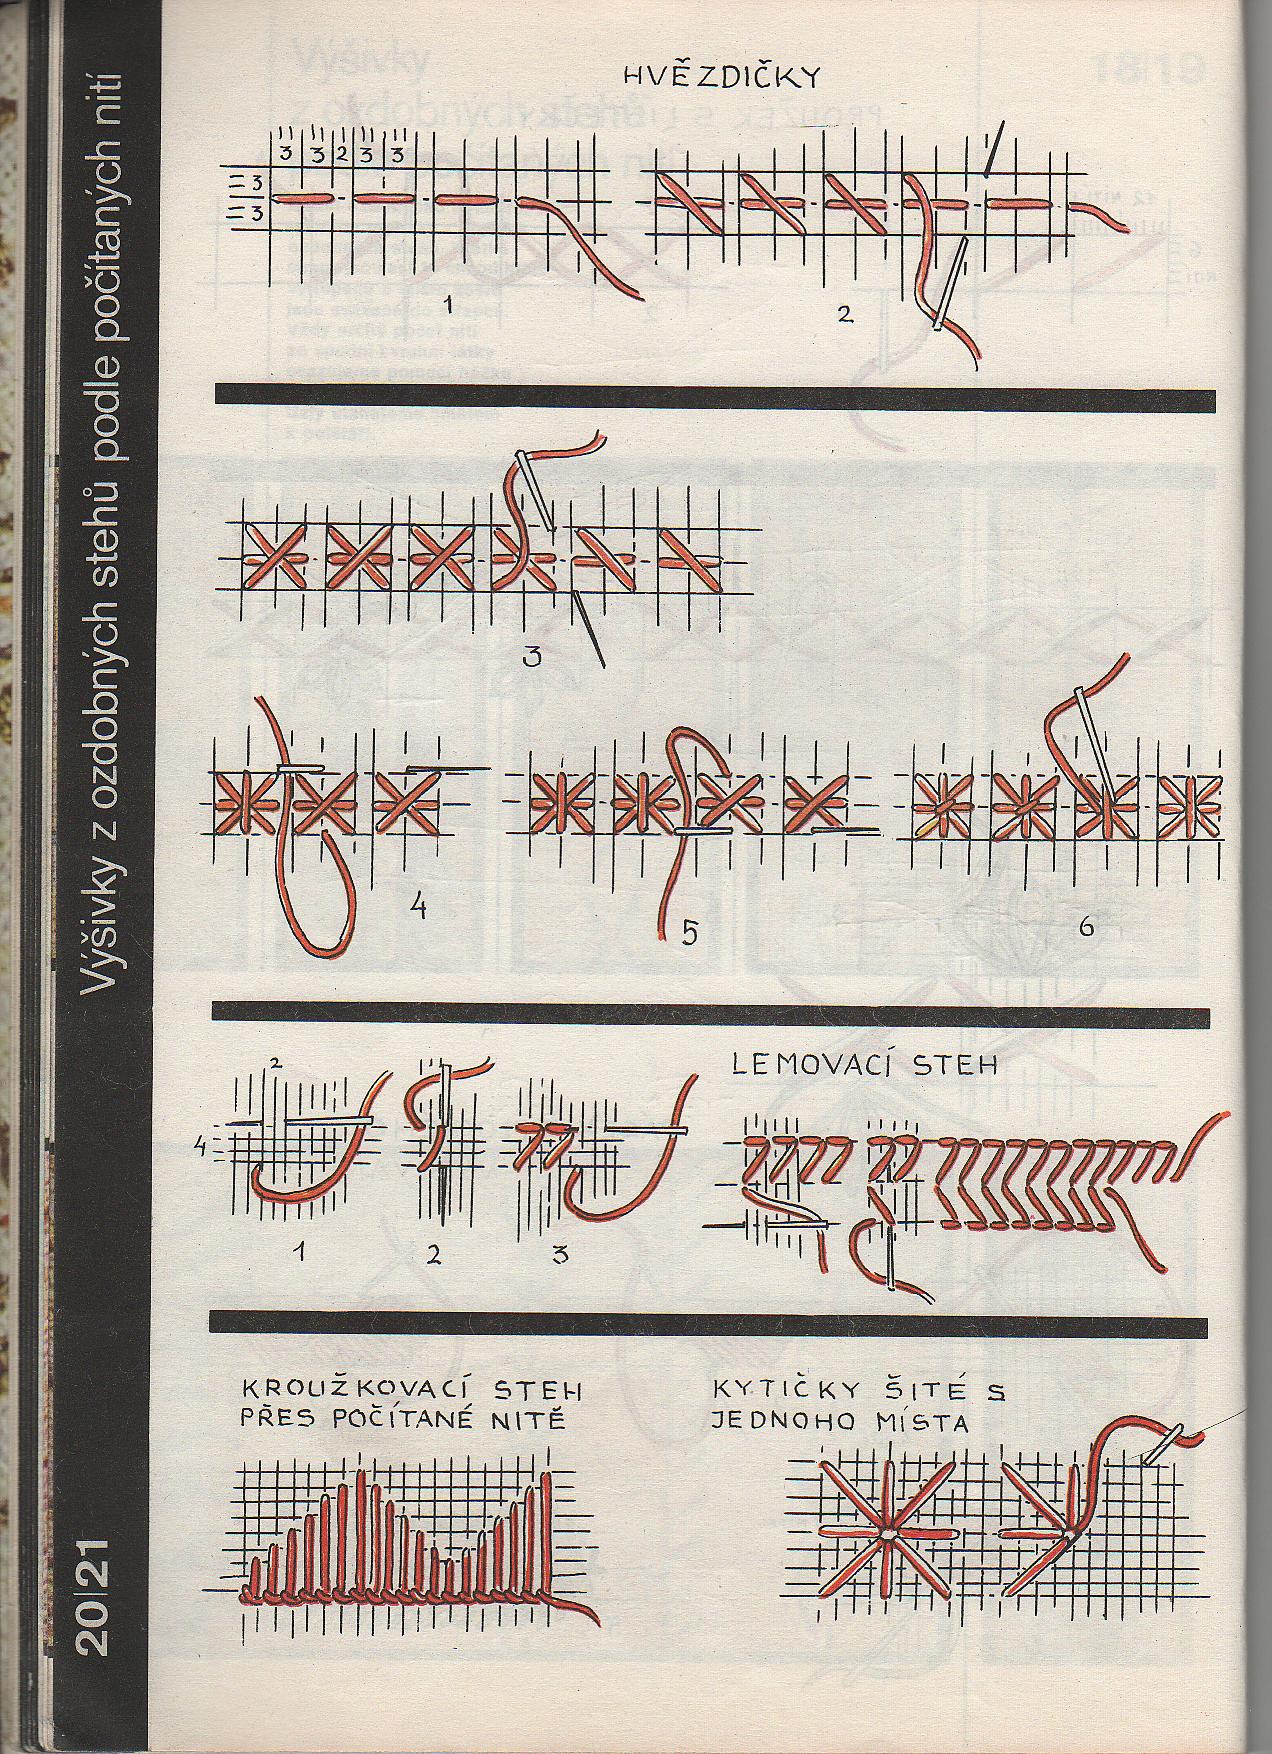 Výšivky z ozdobných stehů podle počítaných nití
20|21
HVĚZDIČKY
3 3 2 3 3
3
3
1
2
3
4
5
6
2
4
1
2
3
LEMOVACÍ STEH
KROUŽKOVACÍ STEH
PŘES POČÍTANÉ NITĚ
KYTIČKY ŠITÉ S
JEDNOHO MÍSTA